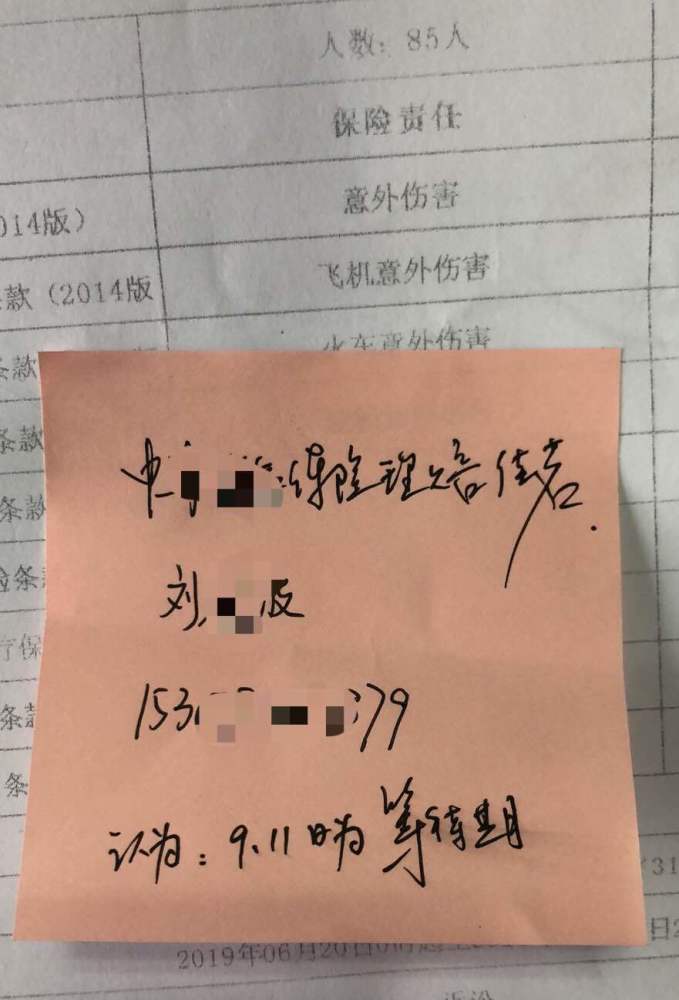 人数：85人
保险责任
意外伤害
014版）
飞机意外伤害
款（2014版
火车意外伤害
条款
条款
条款
险条
疗保
条款
条
保险理赔
刘 波
153 79
认为：9.11日为等待期
31
2019年06月20日0时起
日2